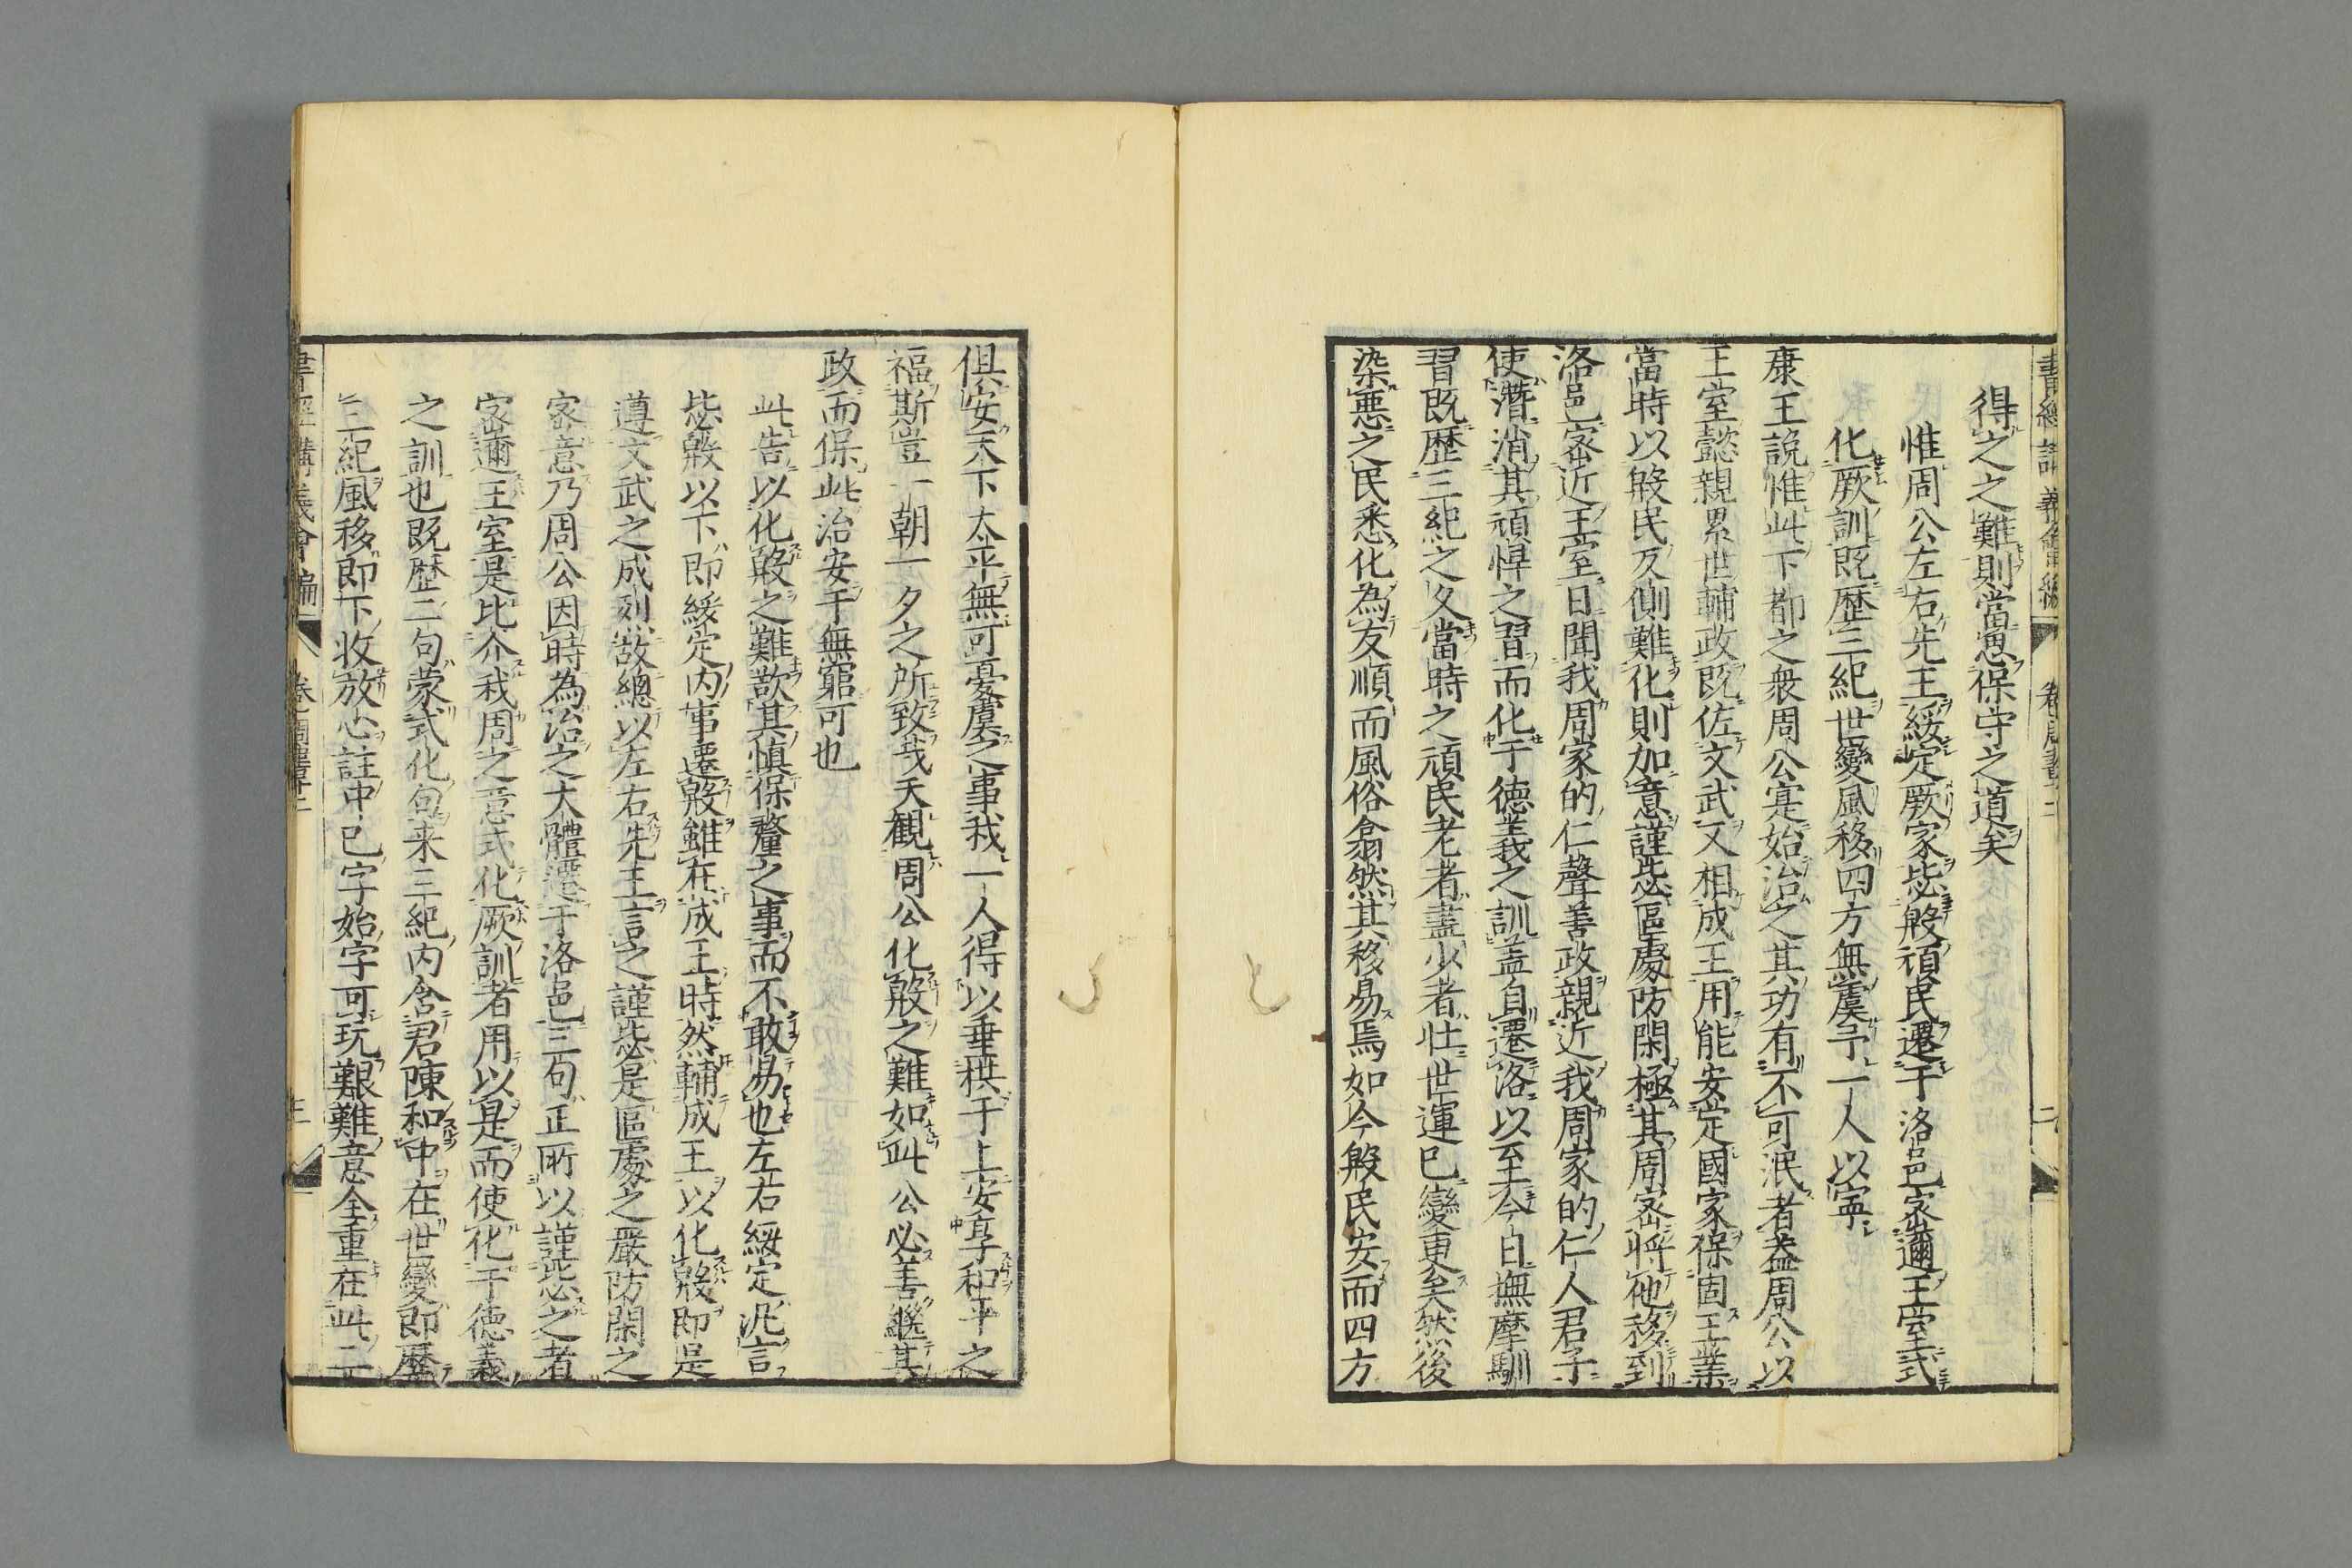 得之之難則當思保守之道矣
惟周公左右先王綏定厥家毖殷頑民遷于洛邑密邇王室式
化厥訓既歴三紀世變風移四方無虞予一人以寧
康王說惟此下都之衆周公寔始治之其功有不可泯者葢周公以
王室懿親累世輔政既佐文武又相成王用能安定國家保固王業
當時以殷民反側難化則加意謹毖區處防閑極其周密將他移到
洛邑密近王室日聞我周家的仁聲善政親近我周家的仁人君子
使潛消其頑悍之習而化于德義之訓葢自遷洛以至今日撫摩馴
習既歴三紀之久當時之頑民老者盡少者壯世運已變更矣然後
染惡之民悉化為友順而風俗翕然其移易焉如今殷民安而四方
俱安天下太平無可憂虞之事我一人得以垂拱于上安享和平之
福斯豈一朝一夕之所致哉夫觀周公化殷之難如此公必善繼其
政而保此治安于無窮可也
此告以化殷之難欲其慎保釐之事而不敢易也左右綏定泛言
毖殷以下即綏定内事遷殷雖在成王時然輔成王以化殷即是
遵文武之成烈故總以左右先王言之謹毖是區處之嚴防閑之
密意乃周公因時為治之大體遷于洛邑三句正所以謹毖之者
密邇王室是比介我周之意式化厥訓者用以是而使化于德義
之訓也既歴二句蒙式化句来三紀内含君陳和中在世變即歴
三紀風移即下收放心註中已字始字可玩艱難意全重在此二
書經講義會編
卷 周書